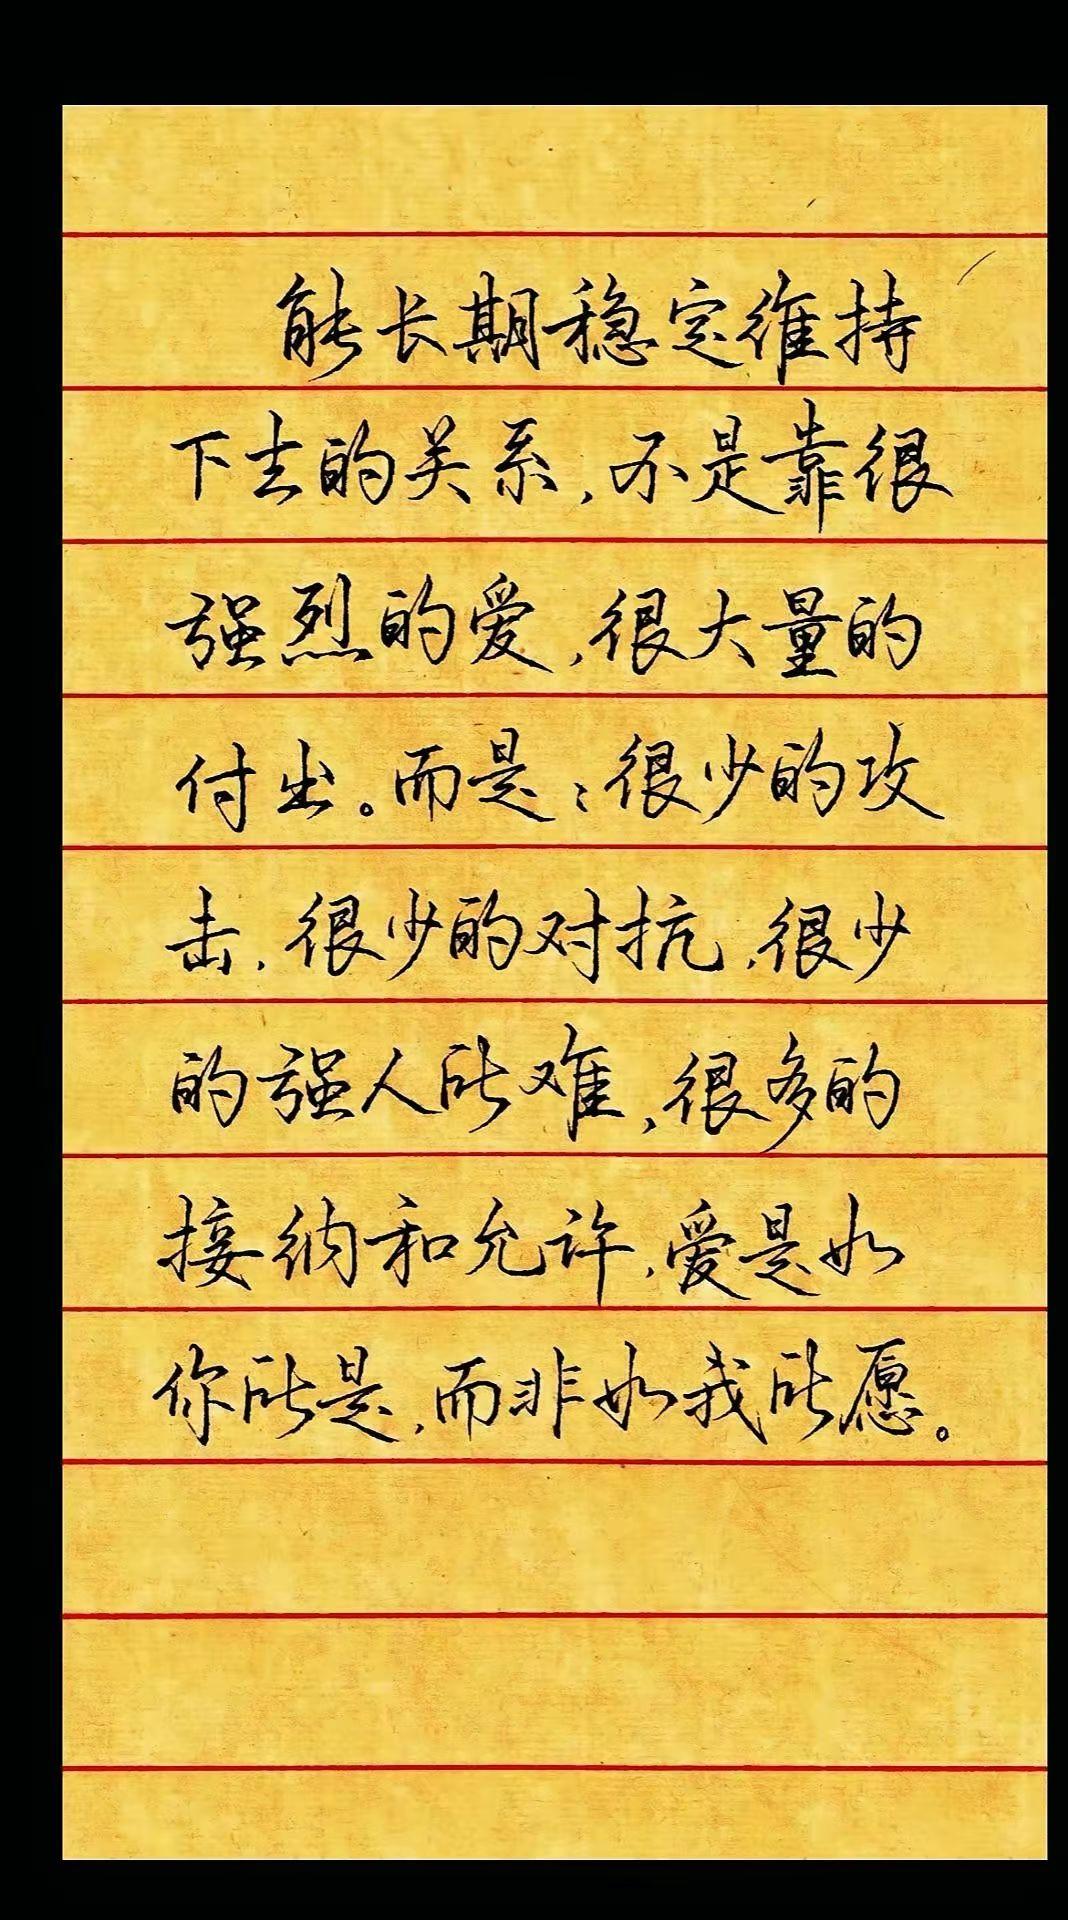 能长期稳定维持
下去的关系,不是靠很
强烈的爱,很大量的
付出。而是:很少的攻
击,很少的对抗,很少
的强人所难,很多的
接纳和允许,爱是如
你所是,而非如我所愿。